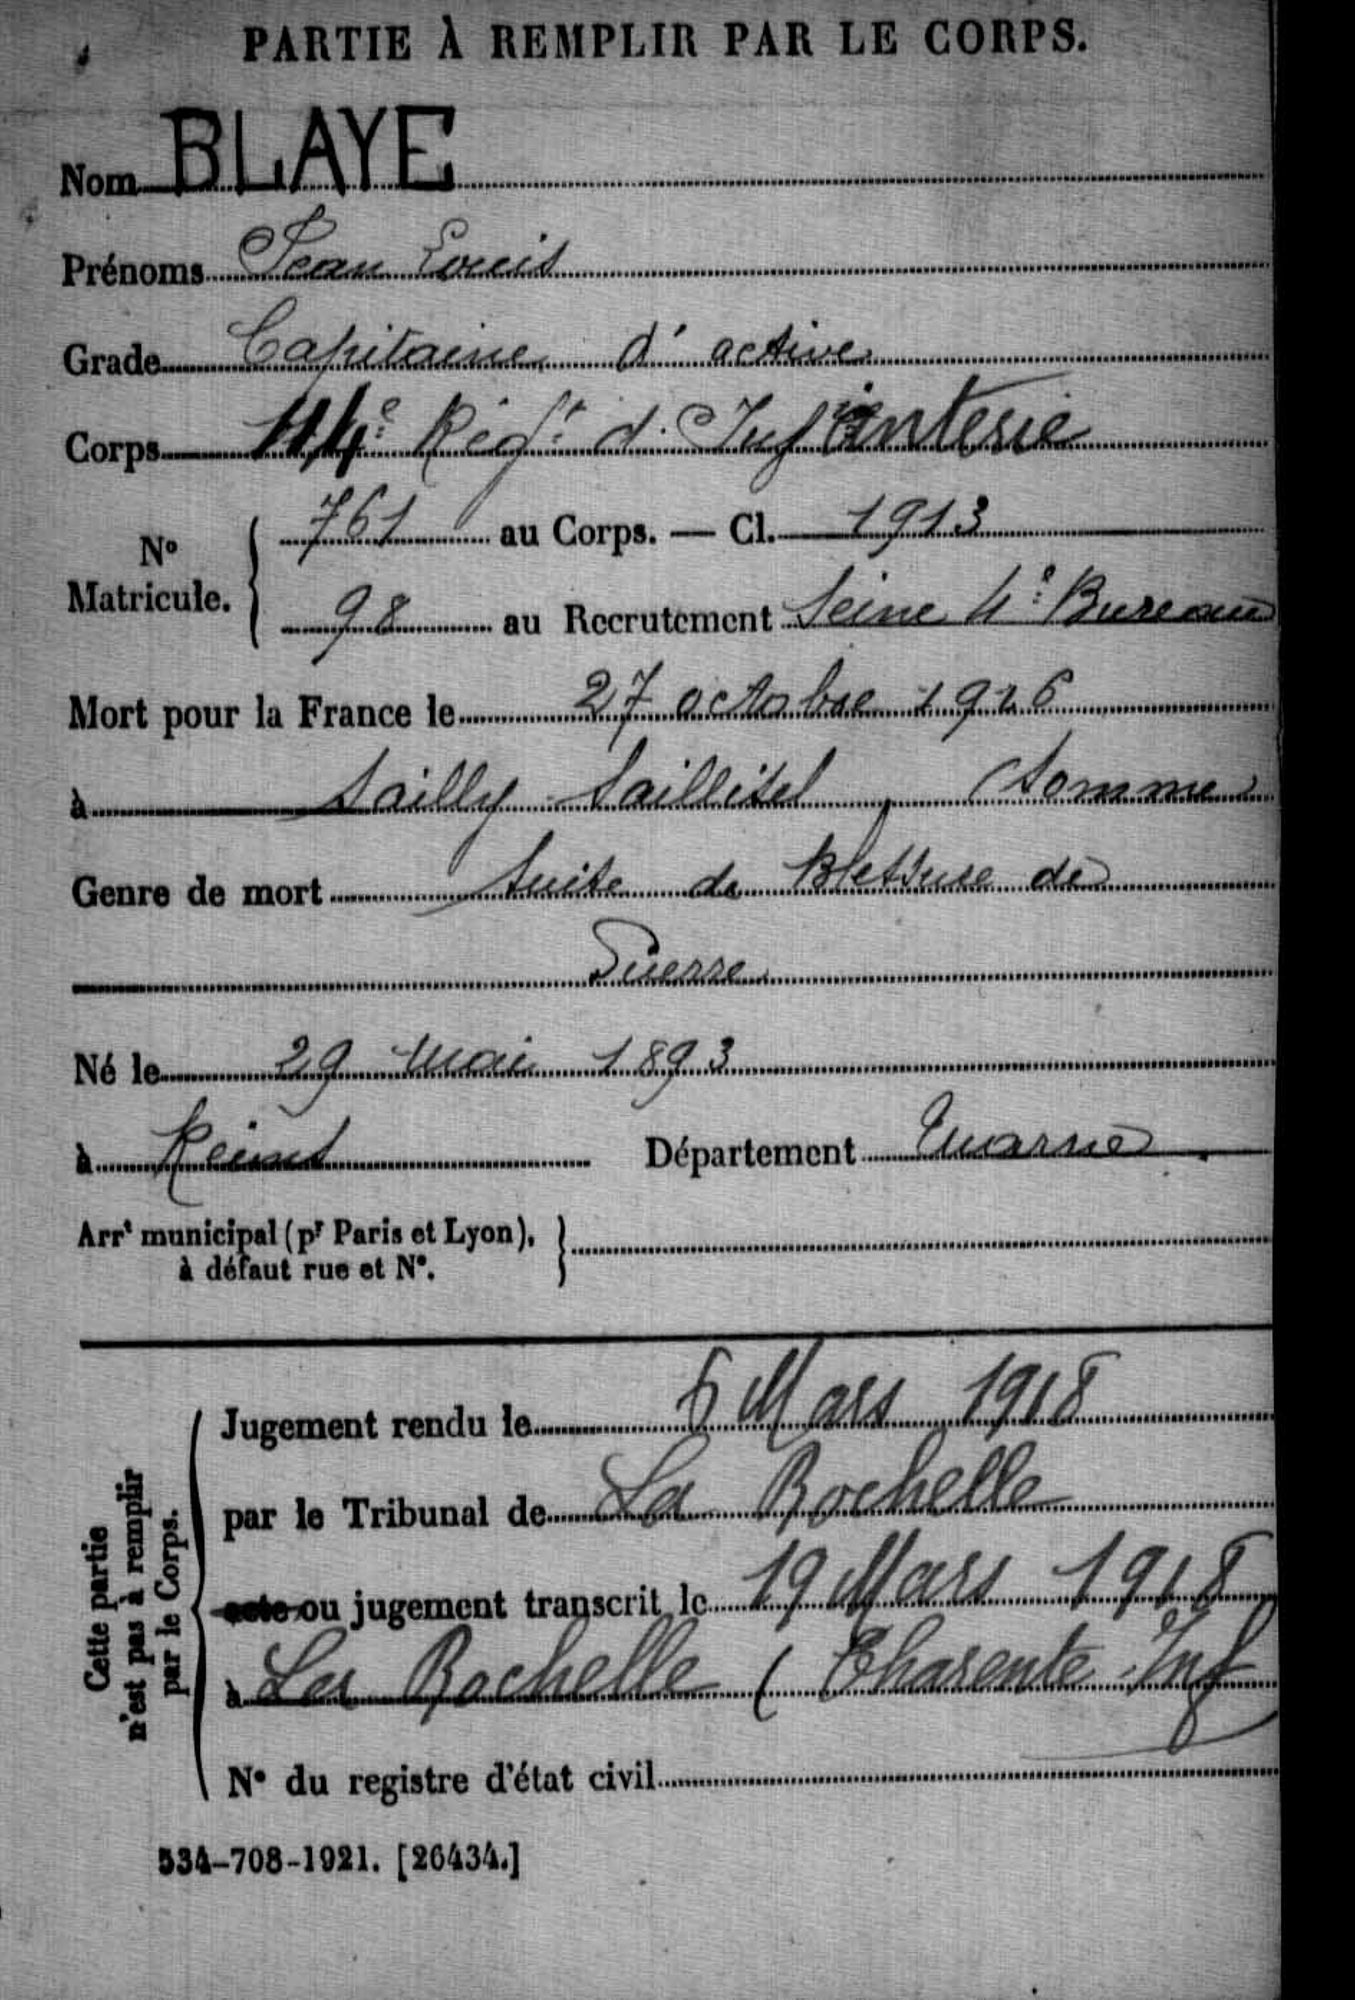 PARTIE À REMPLIR PAR LE CORPS.
Nom BLAYE
Prénoms Jean Louis
Grade Capitaine d'active
Corps 114e Régt d'Infanterie
No Matricule. 761 au Corps. — Cl. 1913
98 au Recrutement Seine 4e Bureau
Mort pour la France le 27 octobre 1916
à Sailly Saillisel (Somme)
Genre de mort Suite de Blessure de
Guerre
Né le 29 mai 1893
à Reims Département Marne
Arrt municipal (pr Paris et Lyon),
à défaut rue et No.
Cette partie
n'est pas à remplir
par le Corps.
Jugement rendu le 6 Mars 1918
par le Tribunal de La Rochelle
acte ou jugement transcrit le 19 Mars 1918
à La Rochelle (Charente-Inf
No du registre d'état civil
534-708-1921. [26434.]